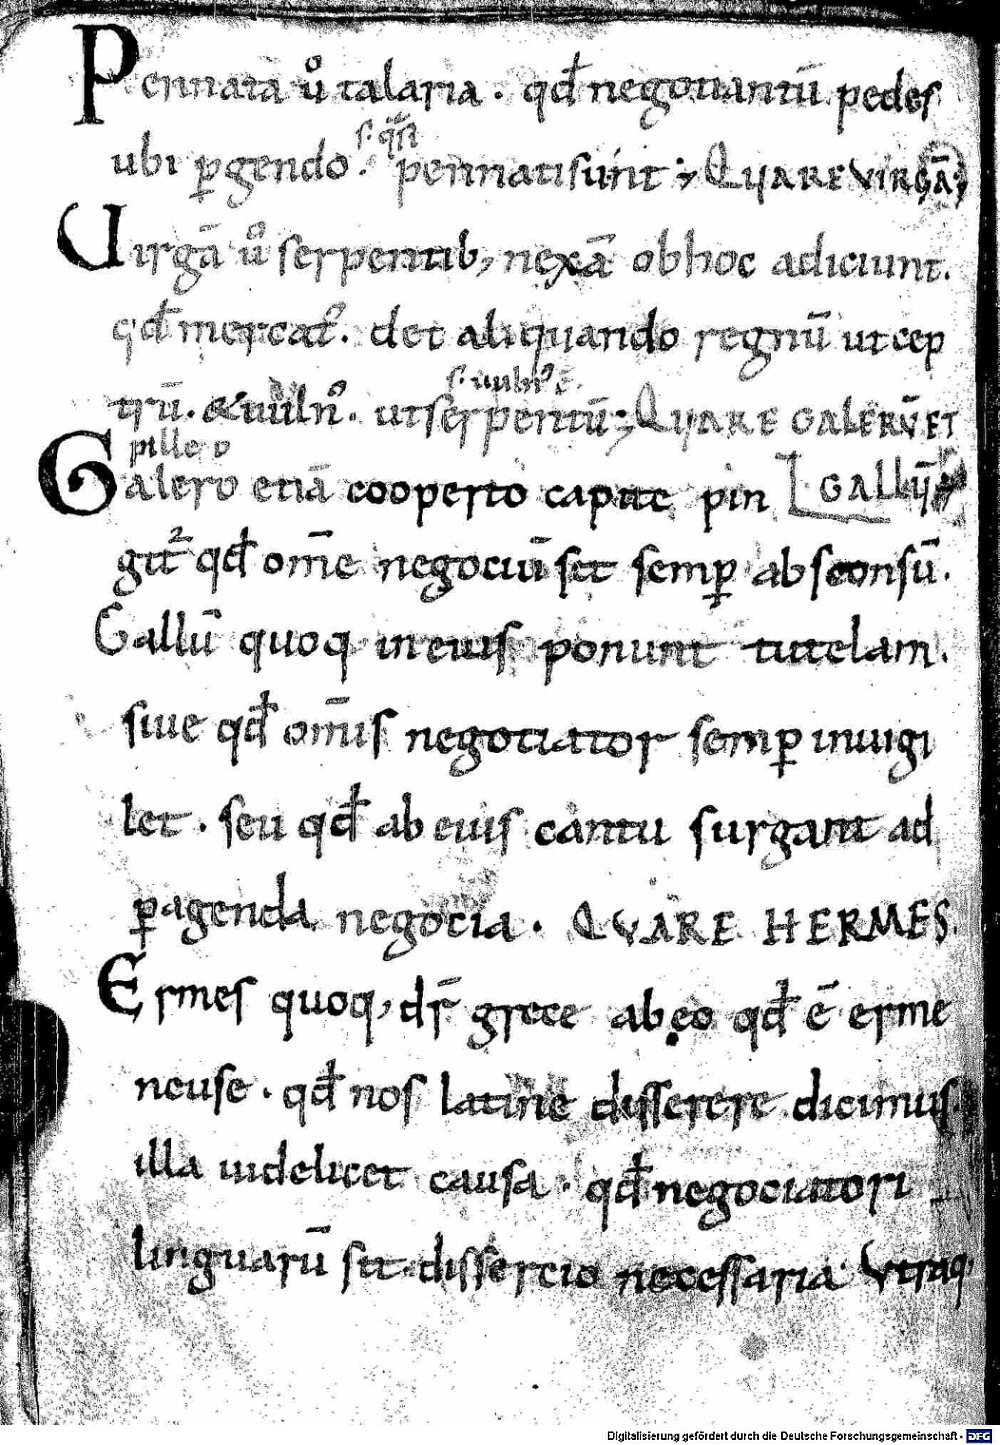 Pennata ů talaria . qđ negotiantū pedes
s. qͣsi
ubi ꝑgendo . pennati sunt ; QUARE VIRGĀ ;
Uirgā ů serpentib; nexā ob hoc adiciunt .
qđ mercat᷒ . det aliquando regnū ut cep
s. uuln᷒ ē .
trū . & uuln᷒ . ut serpentū ; QUARE GALERŪ ET
pilleo
Galero etiā cooperto capite pin GALLŪ
git᷒ qđ om̄e negociū sit semꝑ absconsū .
Gallū quoq in euis ponunt tutelam .
siue qđ om̄is negotiator semꝑ inuigi
let . seu qđ ab euis cantu surgant ad
ꝑagenda negocia . QUARE HERMES .
Ermes quoq; dr̄ grece ab eo qđ ē erme
neuse . qđ nos latine disserere dicimus .
illa uidelicet causa . qđ negociatori
linguarū sit dissercio necessaria Utraq;
Digitalisierung gefördert durch die Deutsche Forschungsgemeinschaft - DFG